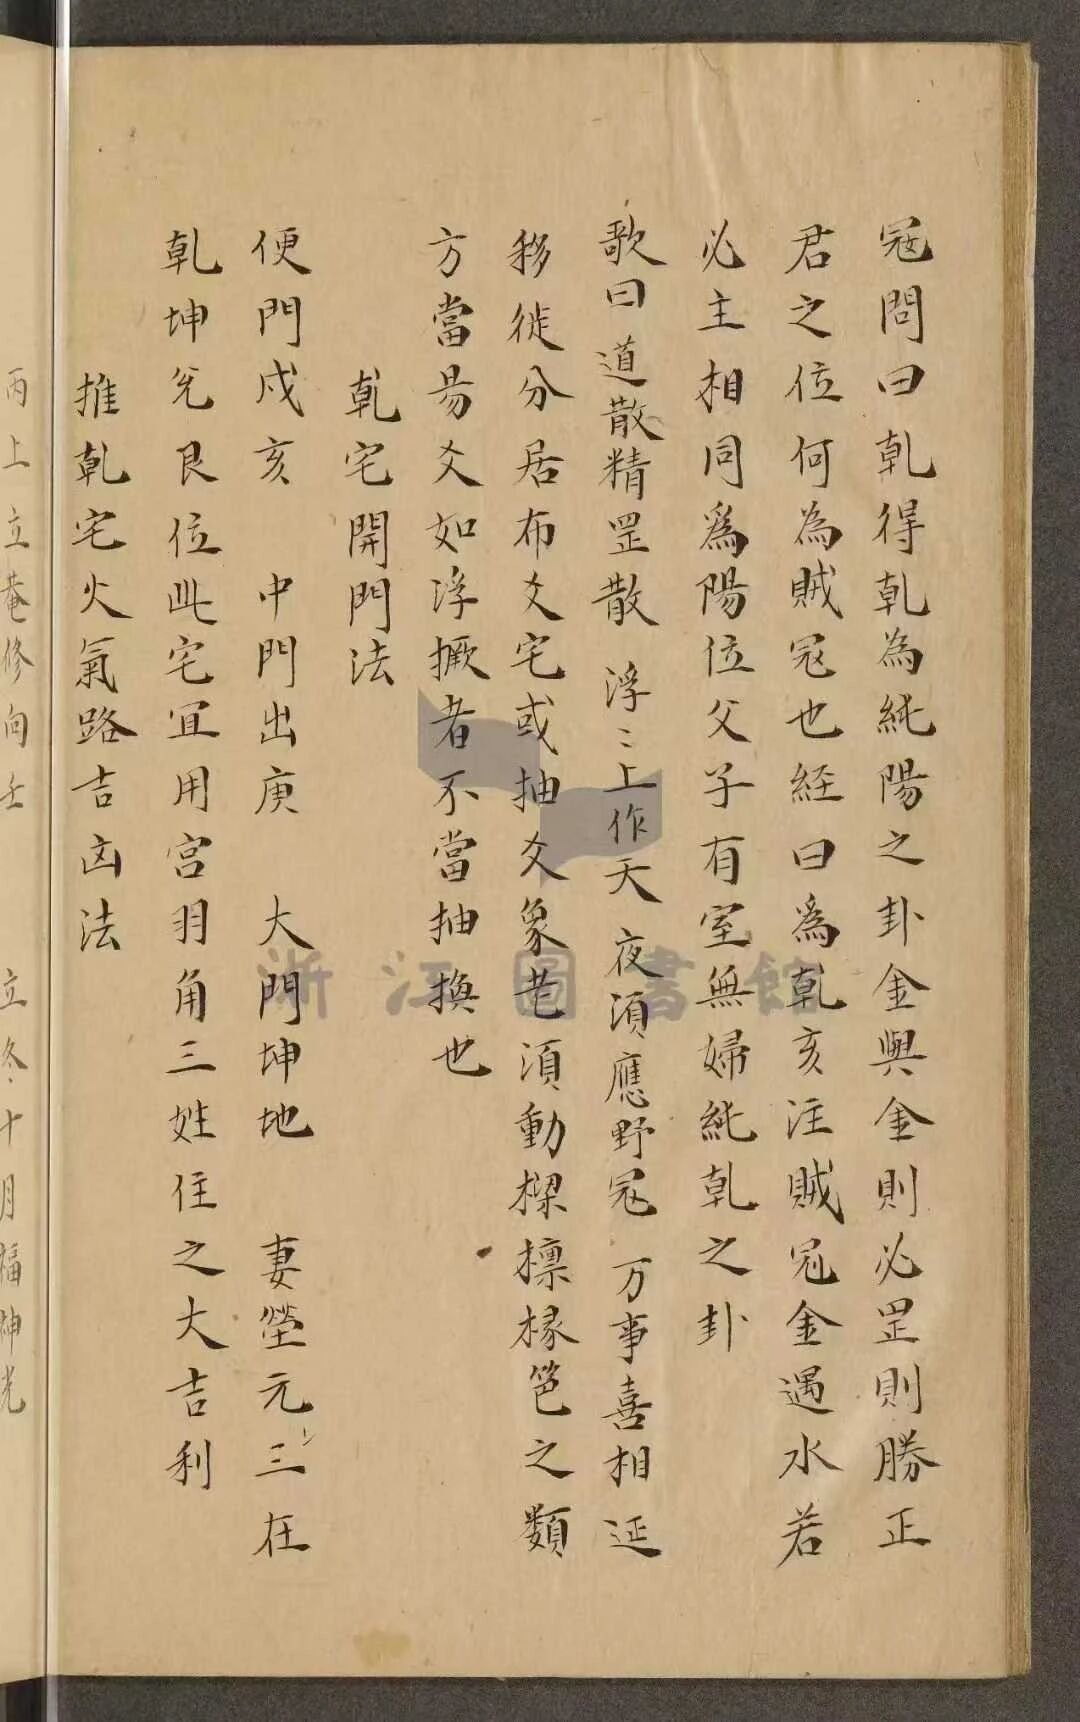 冦問曰乹得乹為純陽之卦金與金則必罡則勝正
君之位何為賊冦也経曰爲乹亥注賊冦金遇水若
必主相同爲陽位父子有室無婦純乹之卦
歌曰道散精罡散 浮〻上作天 夜湏應野冦 万事喜相延
移徙分居布爻宅或抽爻象老湏動樑檁椽笆之類
方當昜爻如浮撅者不當抽換也
乹宅開門法
便門戍亥 中門出庚 大門坤地 妻塋元三在
乹坤兊艮位此宅宜用宫羽角三姓住之大吉利
推乹宅火氣路吉凶法
丙上立菴修向壬 立冬十月福神光
浙江圖書館